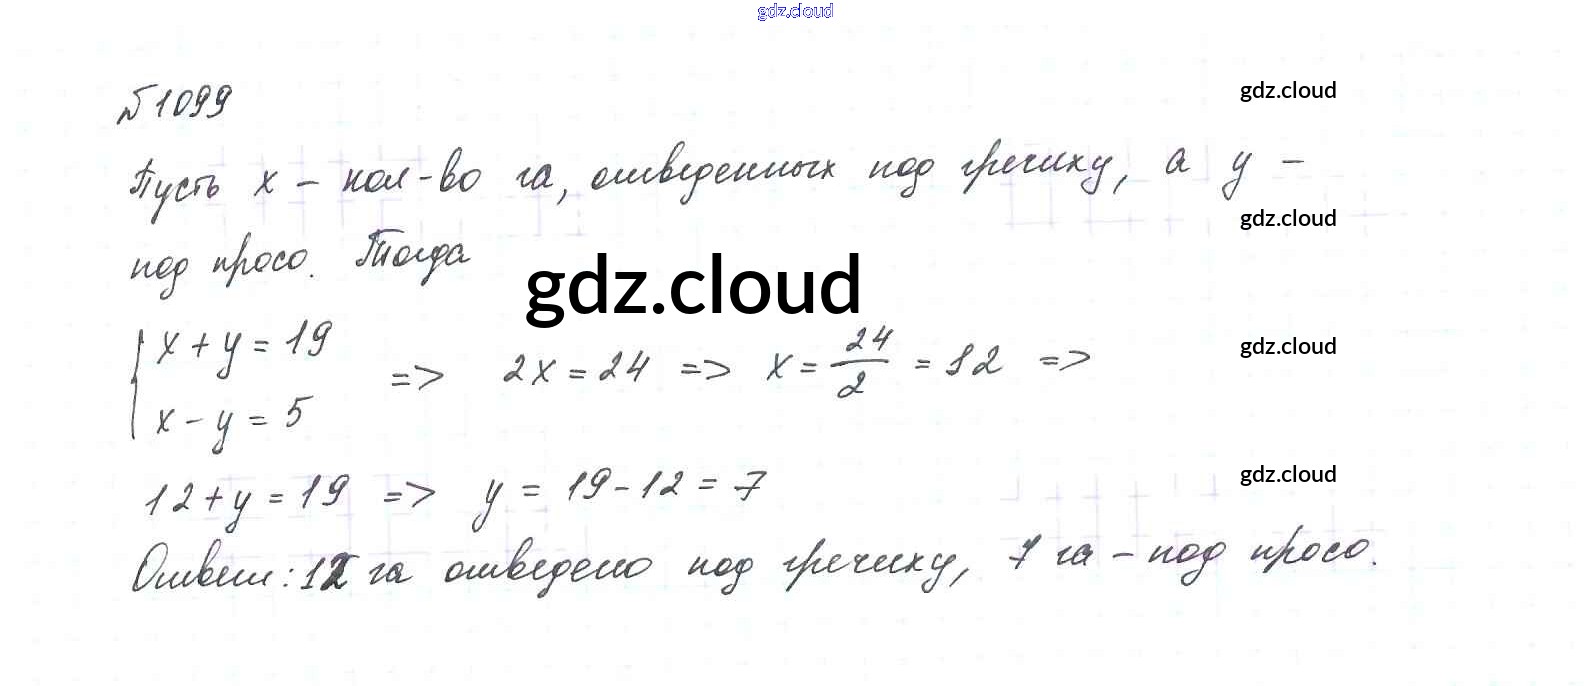 gdz.cloud
№1099
gdz.cloud
Пусть x – кол-во га, отведенных под гречиху, а y –
gdz.cloud
под просо. Тогда
gdz.cloud
{ x + y = 19
x - y = 5 => 2x = 24 => x = 24/2 = 12 =>
gdz.cloud
12 + y = 19 => y = 19 - 12 = 7
gdz.cloud
Ответ: 12 га отведено под гречиху, 7 га – под просо.